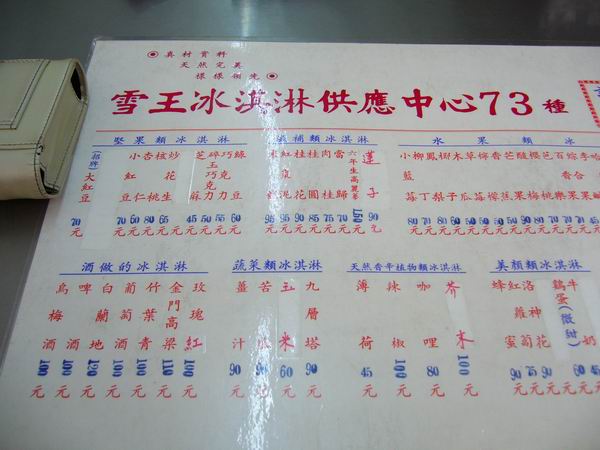 真材實料
天然完美
樣樣領先
雪王冰淇淋供應中心73種
堅果類冰淇淋
(招牌)大紅豆 70元
小紅豆 70元
杏仁 60元
核桃 80元
炒花生 65元
芝麻 45元
巧克力 55元
綠豆 60元
補類冰淇淋
桂花 90元
桂圓 85元
肉桂 75元
當歸 70元
六年生高麗蔘 150元
蓮子 90元
水果類冰
小藍莓 80元
柳丁 70元
鳳梨 80元
椰子
木瓜
草莓
檸檬
香蕉
芒果
酸梅
櫻桃
芭樂
百香果
酒做的冰淇淋
烏梅酒 100元
啤酒 100元
白蘭地 120元
葡萄酒 100元
竹葉青 100元
金門高粱 110元
玫瑰紅 100元
蔬菜類冰淇淋
薑汁 90元
苦瓜 90元
玉米 60元
九層塔 90元
天然香辛植物類冰淇淋
薄荷 45元
辣椒 100元
咖哩 80元
芥末 100元
美顏類冰淇淋
蜂蜜
紅蘿蔔
洛神花 90元
雞蛋(微甜) 60元
牛奶